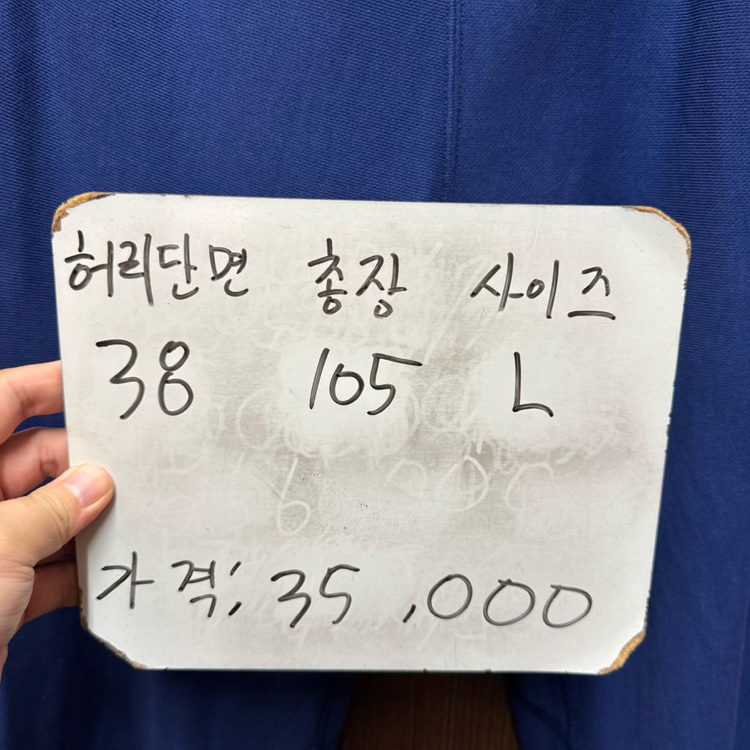 허리단면 총장 사이즈
38 105 L
가격; 35,000